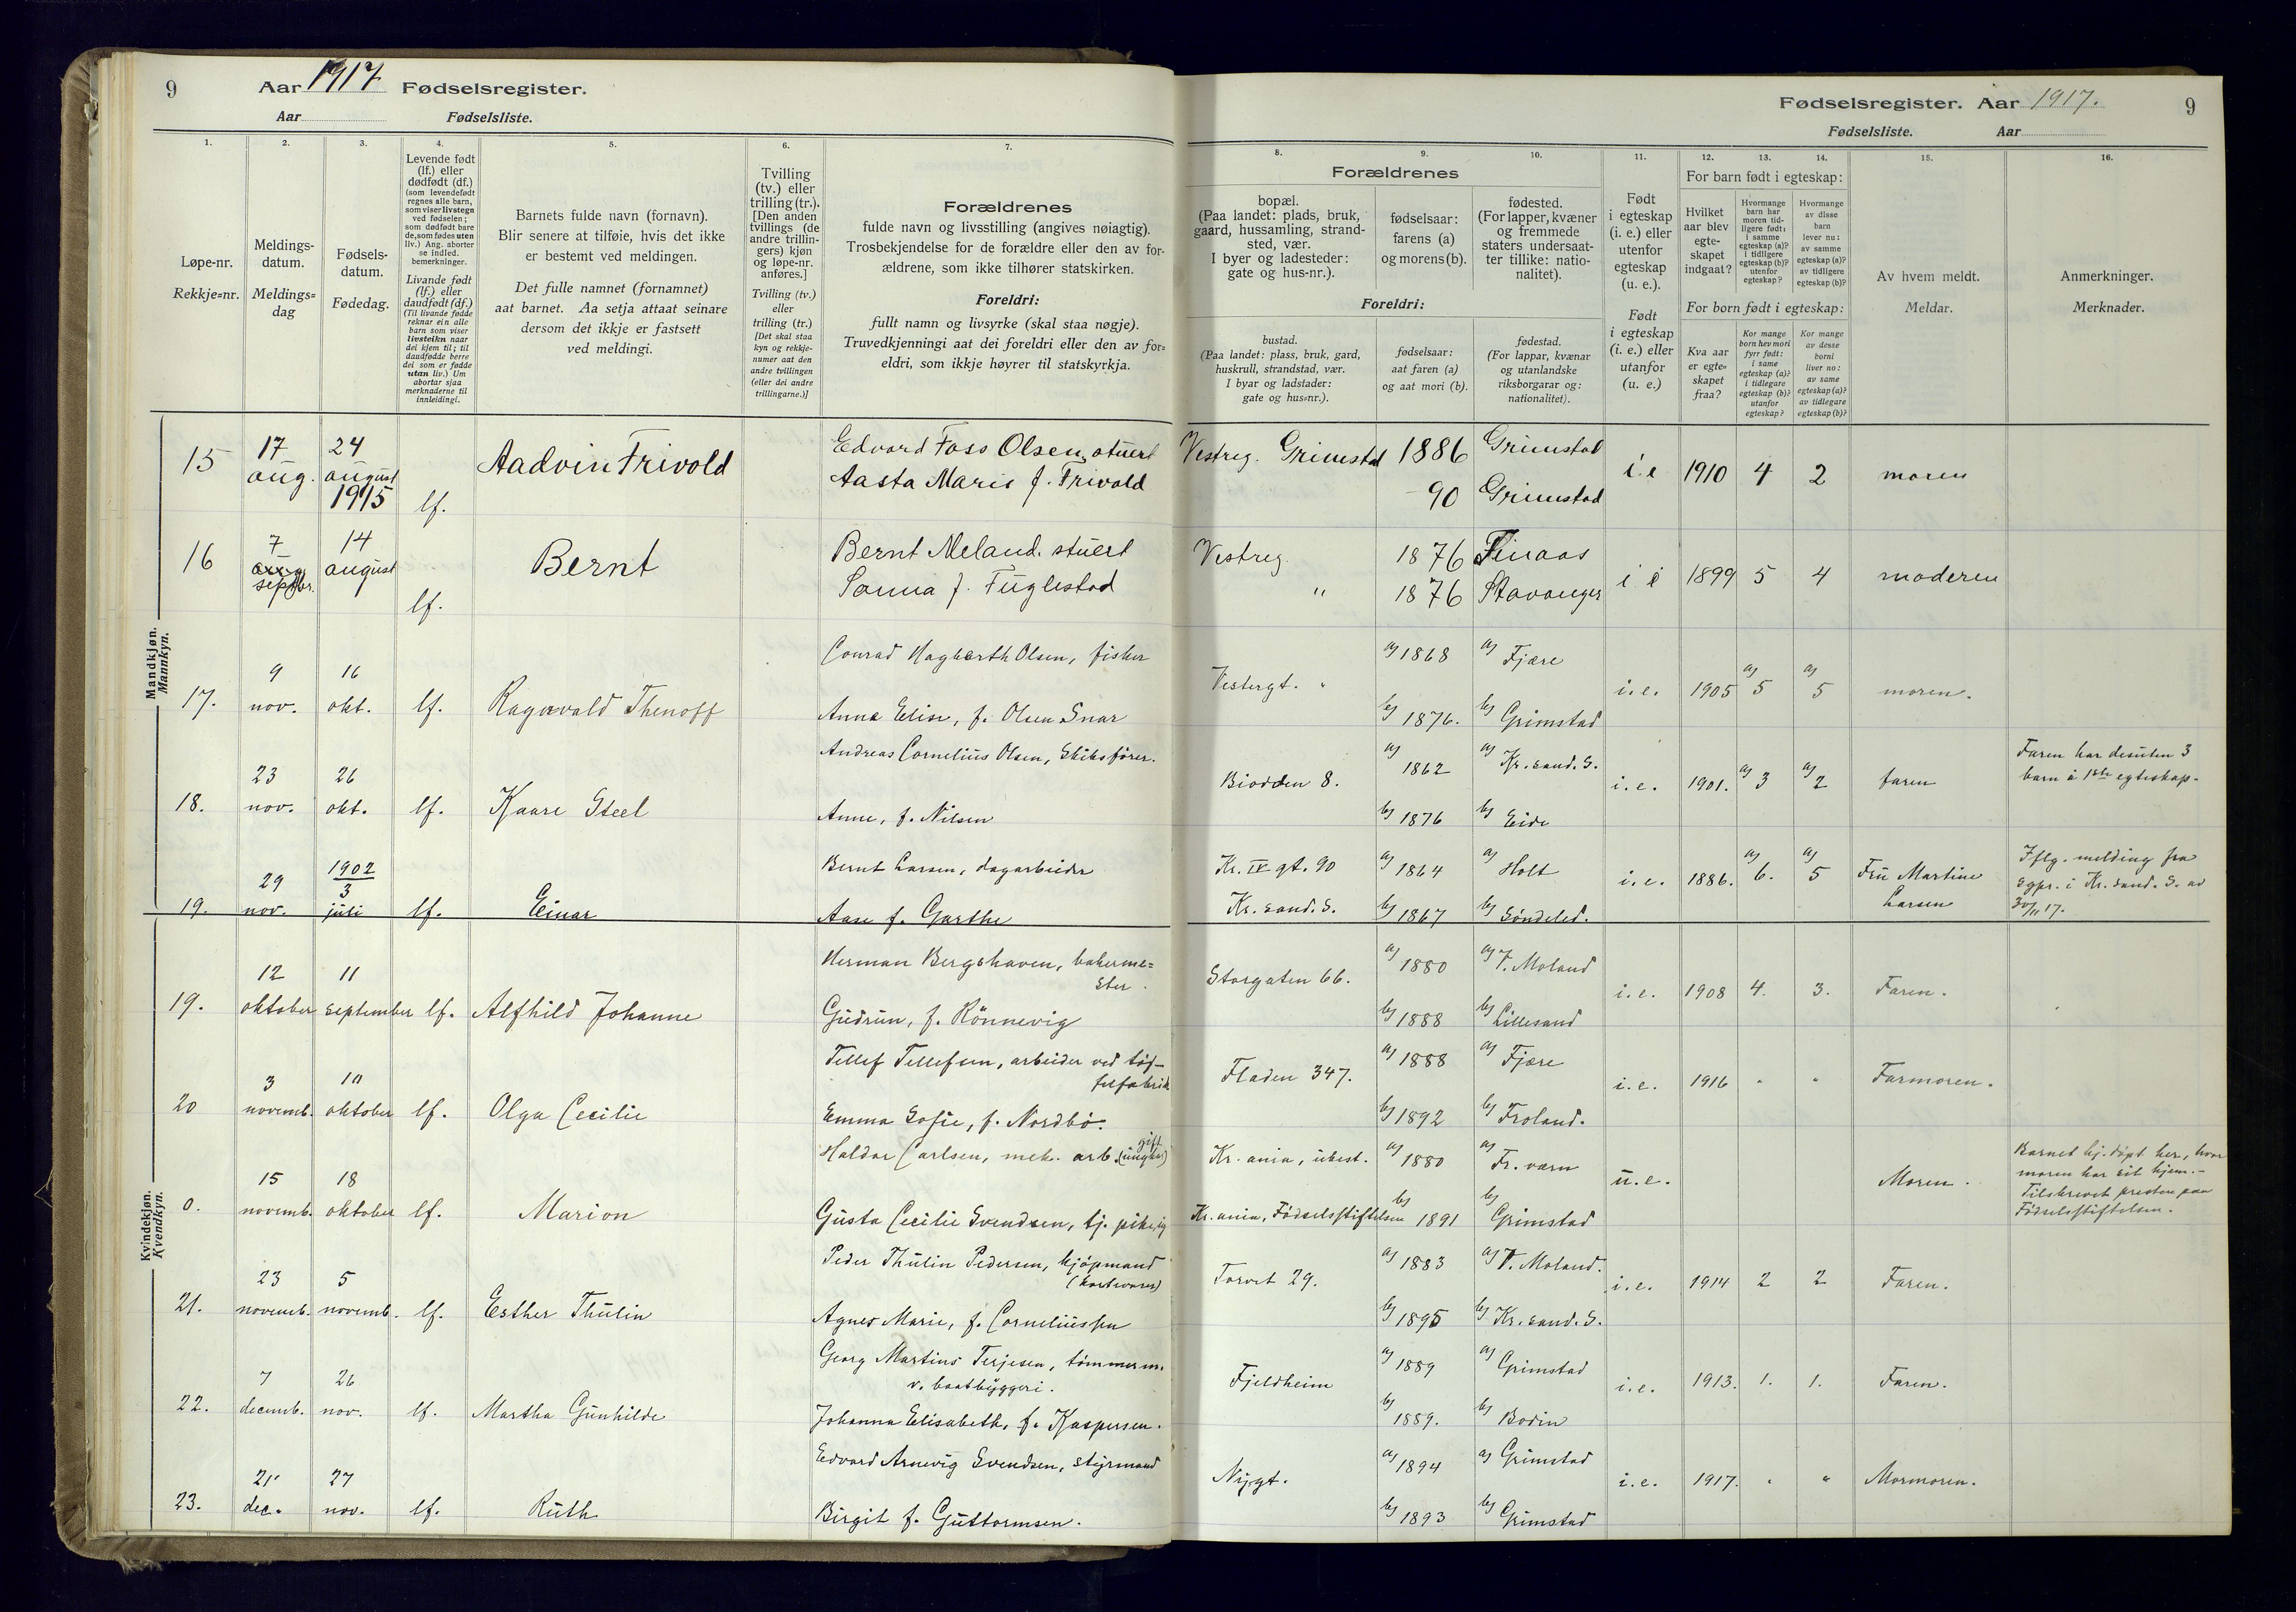 9 Aar 1917 Fødselsregister.
Aar Fødselsliste.
Fødselsregister. Aar 1917. 9
Fødselsliste. Aar
1. 2. 3. 4. 5. 6. 7.
Løpe-nr.
Rekkje=nr.
Meldings-
datum.
Meldings=
dag
Fødsels-
datum.
Fødedag.
Levende født
(lf.) eller
dødfødt (df.)
(som levendefødt
regnes alle barn,
som viser livstegn
ved fødselen;
som dødfødt bare
de, som fødes uten
liv.) Ang. aborter
se indled.
bemerkninger.
Livande født
(lf.) eller
daudfødt (df.)
(Til livande fødde
reknar ein alle
barn som viser
livsteikn naar
dei kjem til; til
daudfødde berre
dei som er fødde
utan liv.) Um
abortar sjaa
merknaderne til
innleidingi.
Barnets fulde navn (fornavn).
Blir senere at tilføie, hvis det ikke
er bestemt ved meldingen.
Det fulle namnet (fornamnet)
aat barnet. Aa setja attaat seinare
dersom det ikkje er fastsett
ved meldingi.
Tvilling
(tv.) eller
trilling (tr.).
[Den anden
tvillings (de
andre trillin-
gers) kjøn
og løpe-nr.
anføres.]
Tvilling (tv.)
eller
trilling (tr.)
[Det skal staa
kyn og rekkje-
numer aat den
andre tvillingen
(eller dei andre
trillingarne.)]
Forældrenes
fulde navn og livsstilling (angives nøiagtig).
Trosbekjendelse for de forældre eller den av for-
ældrene, som ikke tilhører statskirken.
Foreldri:
fullt namn og livsyrke (skal staa nøgje).
Truvedkjenningi aat dei foreldri eller den av for=
eldri, som ikkje høyrer til statskyrkja.
8. 9. 10. 11. 12. 13. 14. 15. 16.
Forældrenes
bopæl.
(Paa landet: plads, bruk,
gaard, hussamling, strand-
sted, vær.
I byer og ladesteder:
gate og hus-nr.).
fødselsaar:
farens (a)
og morens (b).
fødested.
(For lapper, kvæner
og fremmede
staters undersaat-
ter tillike: natio-
nalitet).
Foreldri:
bustad.
(Paa landet: plass, bruk, gard,
huskrull, strandstad, vær.
I byar og ladstader:
gate og hus=nr.).
fødselsaar:
aat faren (a)
og aat mori (b).
fødestad.
(For lappar, kvænar
og utanlandske
riksborgarar og:
nationalitet).
Født
i egteskap
(i. e.) eller
utenfor
egteskap
(u. e.).
Født
i egteskap
(i. e.) eller
utanfor
(u. e.)
For barn født i egteskap:
Hvilket
aar blev
egte-
skapet
indgaat?
Hvormange
barn har
moren tid-
ligere født:
i samme
egteskap (a)?
i tidligere
egteskap (b)?
utenfor
egteskap?
Hvormange
av disse
barn
lever nu:
av samme
egteskap (a)?
av tidligere
egteskap (b)?
For born født i egteskap:
Kva aar
er egte=
skapet
fraa?
Kor mange
born hev mori
fyrr født:
i same
egteskap (a)?
i tidlegare
egteskap (b)?
utanfor
egteskap?
Kor mange
av desse
borni
liver no:
av same
egteskap (a)?
av tidlegare
egteskap (b)?
Av hvem meldt.
Meldar.
Anmerkninger.
Merknader.
Mandkjøn.
Mannkyn.
15 17 aug. 24 august 1915 lf. Aadvin Trivold
Edvard Foss Olsen, stuert
Aasta Marie f. Trivold
Vestreg. Grimstad 1886 Grimstad
-90 Grimstad
i. e 1910 4 2 moren
16 7 septbr. 14 august lf. Bernt
Bernt Meland. stuert
Sanna f. Fuglestad
Vestreg. 1876 Finaas
" 1876 Stavanger
i e 1899 5 4 moderen
17. 9 nov. 16 okt. lf. Ragnvald Thenoff
Conrad Hagbarth Olsen, fisker
Anna Elise, f. Olsen Snar
Vestergt. " a) 1868 a) Fjære
b) 1876. b) Grimstad
i. e. 1905 a) 5 a) 5 moren.
18. 23 nov. 26 okt. lf. Kaare Steel
Andreas Cornelius Olsen, Skibsfører.
Anne, f. Nilsen
Biodden 8. a) 1862 a) Kr.sand. S.
b) 1876 b) Eide
i. e. 1901. a) 3 a) 2 faren
Faren har desuten 3
barn i 1ste egteskap.
19. 29 nov. 1902 3 juli lf. Einar
Bernt Larsen, dagarbeider
Aase f. Garthe
Kr. IV gt. 90 a) 1864 a) Holt
Kr. sand. S. b) 1867 b) Søndeled.
i. e. 1886. a) 6. a) 5 Fru Martine
Larsen
Iflg. melding fra
sgpr. i Kr. sand. S. av
30/11 17.
Kvindekjøn.
Kvendkyn.
19. 12 oktober 11 september lf. Alfhild Johanne
Herman Bergshaven, bakerme=
ster.
Gudrun, f. Rönnevig
Storgaten 66. a) 1880 a) V. Moland
b) 1888 b) Lillesand
i. e. 1908 4. 3. Faren.
20 3 novemb. 10 oktober lf. Olga Cecilie
Tellef Tellefsen, arbeider ved tøf-
felfabrik
Emma Sofie, f. Nordbö.
Fladen 347. a) 1888 a) Fjære
b) 1892 b) Froland.
i. e. 1916 " " Farmoren.
0. 15 novemb. 18 oktober lf. Marion
Haldor Carlsen, mek. arb. gift
Gusta Cecilie Svendsen, tj. pike, ug
Kr.ania, ubest. a) 1880 a) Fr. værn
Kr.ania, Fødselsstiftelsen b) 1891 b) Grimstad
u. e. Moren.
Barnet bj. døpt her, hvor
moren har sit hjem.-
Tilskrevet presten paa
Fødselsstiftelsen.
21. 23 novemb. 5 novemb. lf. Esther Thulin
Peder Thulin Pedersen, kjøpmand
(kortevarer)
Agnes Marie, f. Corneliussen
Torvet 29. a) 1883 a) V. Moland.
b) 1895 b) Kr. sand. S.
i. e. 1914 2 2 Faren.
22. 7 decemb. 26 nov. lf. Martha Gunhilde
Georg Martius Terjesen, tömmerm.
v. baatbyggeri.
Johanna Elisabeth, f. Kaspersen.
Fjeldheim a) 1889 a) Grimstad
b) 1889. b) Bodin
i. e. 1913. 1. 1. Faren.
23. 21 dec. 27 nov. lf. Ruth
Edvard Arnevig Svendsen, styrmand
Birgit f. Guttormsen.
Ny.gt. a) 1894 a) Grimstad
b) 1893 b) Grimstad
i. e. 1917. " " Mormoren.